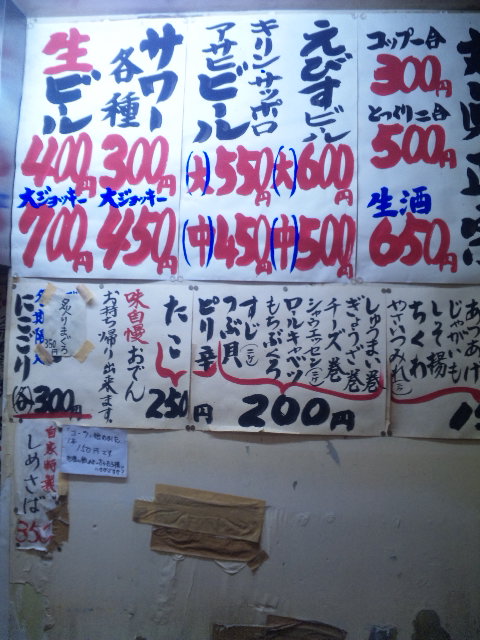 コップ一合
300円
とっくり二合
500円
生酒
650円
えびすビル
(大)600円
(中)500円
キリン・サッポロ
アサヒビール
(大)550円
(中)450円
サワー
各種
300円
大ジョッキー
450円
生ビール
400円
大ジョッキー
700円
あつあげ
じゃがいも
しそ揚
ちくわ
やさいつみれ
しゅうまい巻
ぎょうざ巻
チーズ巻
シャウエッセン(二ケ)
ロールキャベツ
もちぶくろ
すじ(二ケ)
つぶ貝
ピリ辛
200円
たこ
250円
味自慢おでん
お持ち帰り出来ます。
炙りまぐろ
350円
にこごり
300円
自家特製
しめさば
350
150円です